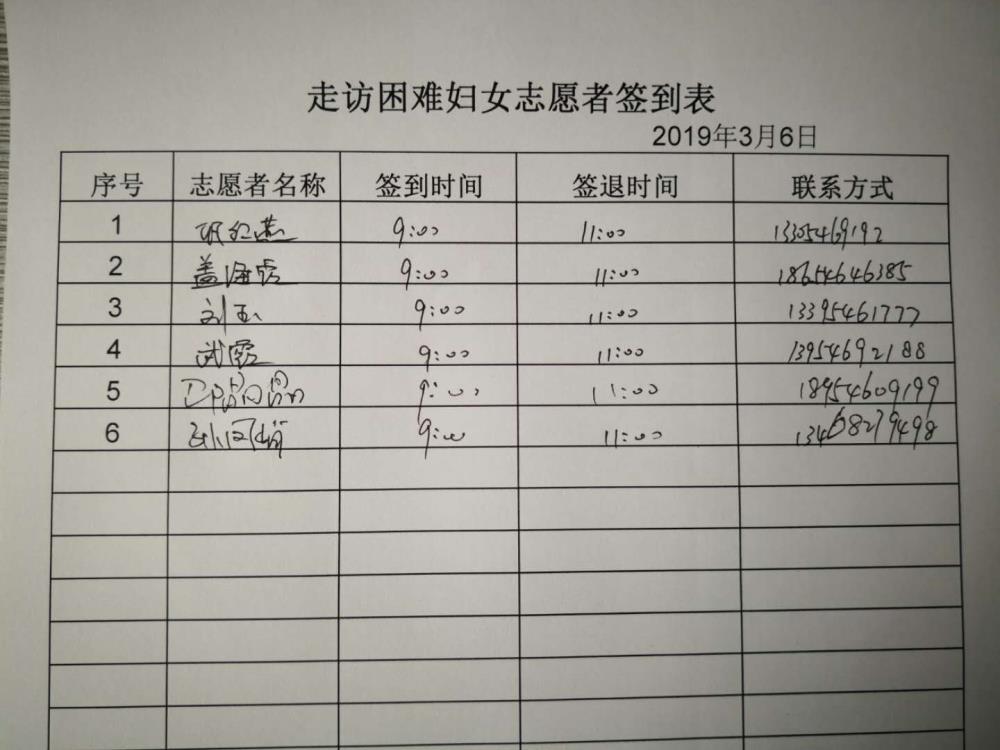 走访困难妇女志愿者签到表
2019年3月6日
序号 志愿者名称 签到时间 签退时间 联系方式
1 9:00 11:00 13305469192
2 盖海霞 9:00 11:00 18654646385
3 刘玉 9:00 11:00 13395461777
4 武霞 9:00 11:00 13954692188
5 9:00 11:00 18954609199
6 9:00 11:00 13468279498